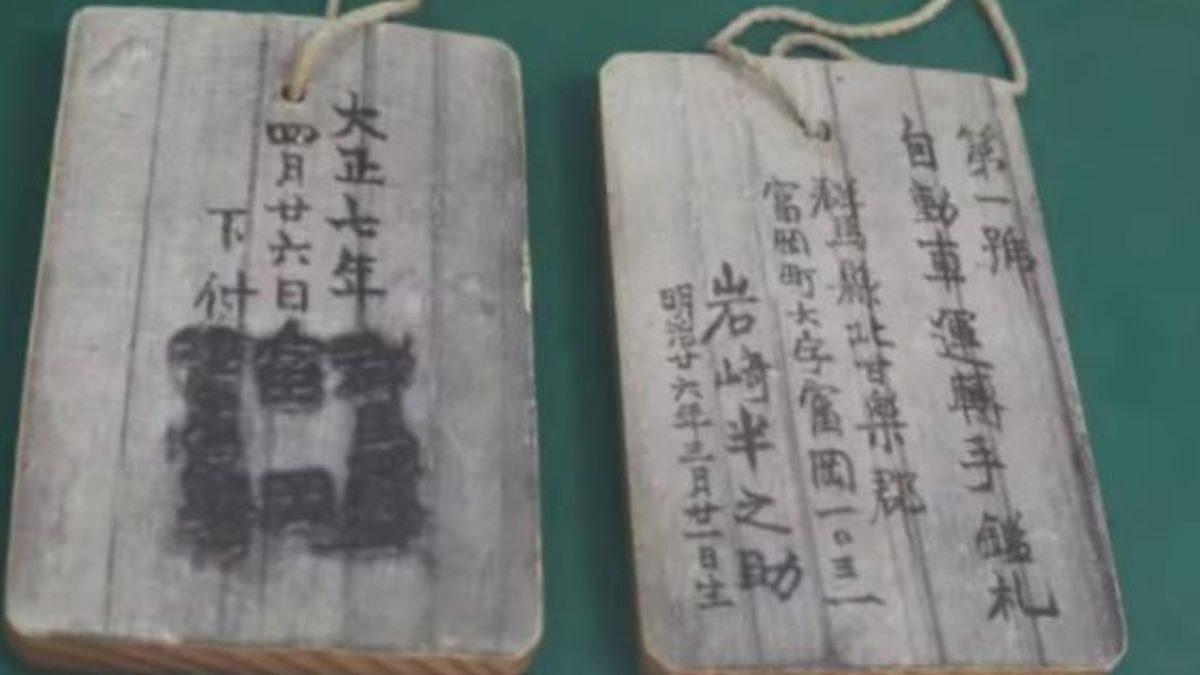 大正七年
四月廿六日
下付
富岡
第一號
自動車運轉手鑑札
群馬縣北甘樂郡
富岡町大字富岡一〇三二
岩崎半之助
明治廿六年三月廿一日生